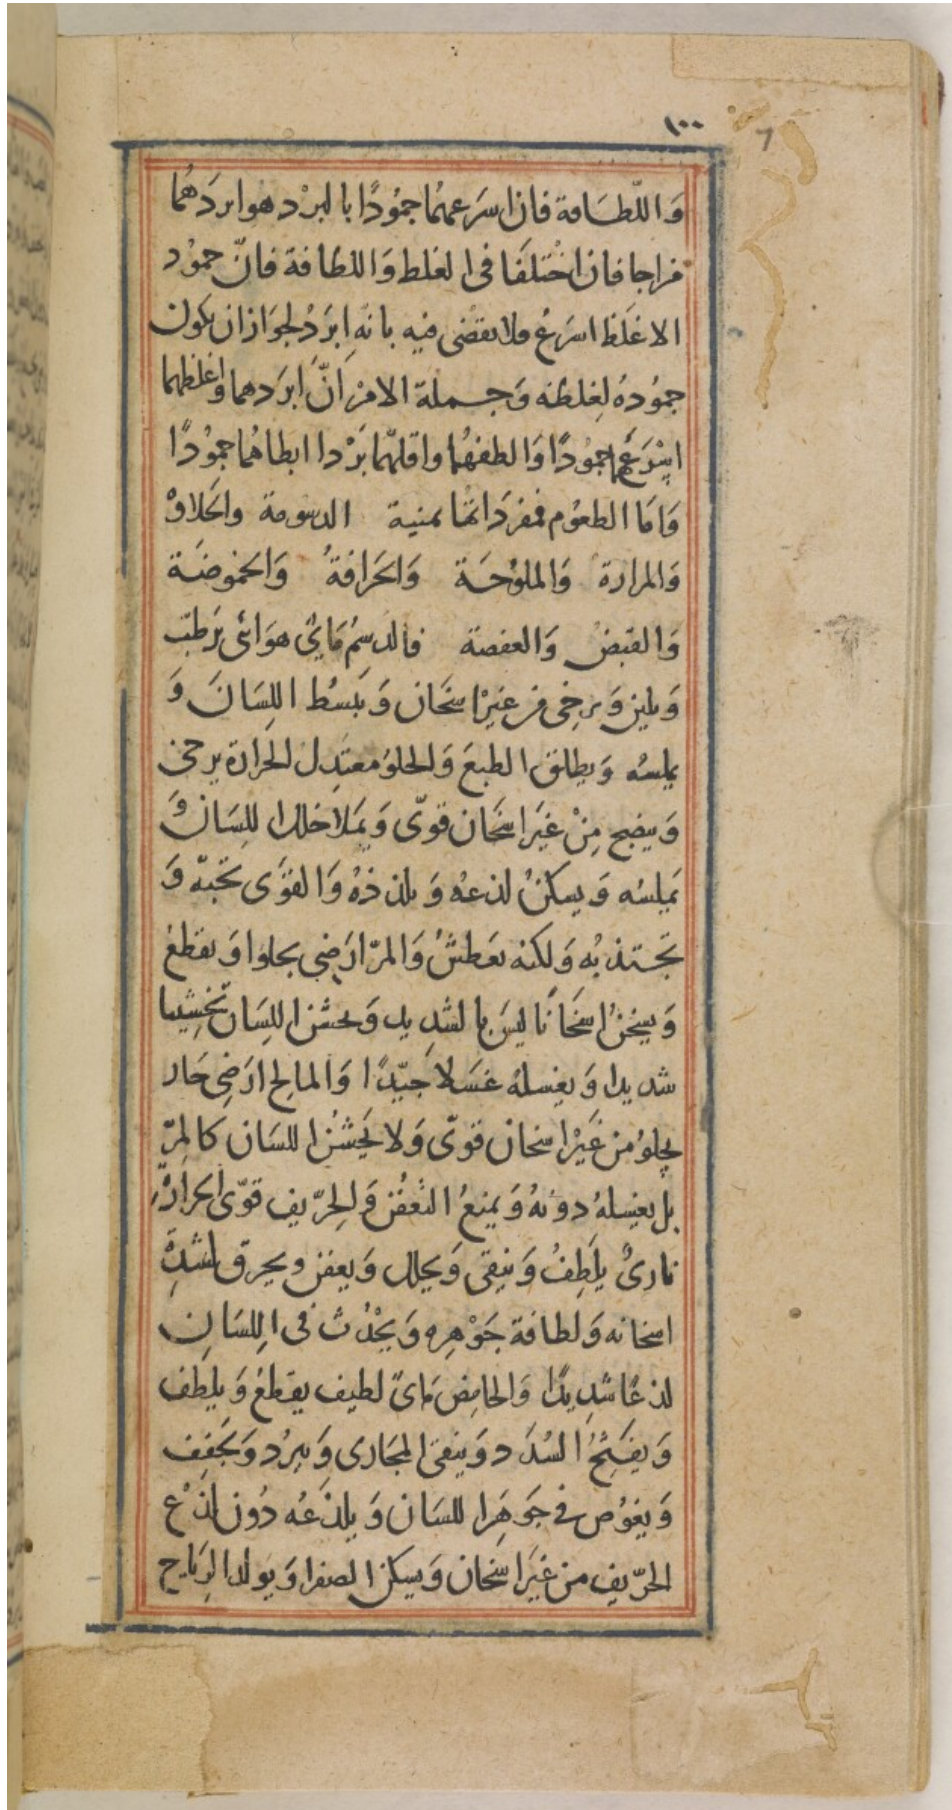 ١٠٠
7
وَاللّطَافة فان اسرَعهمُا جمُودًا بالبرْد هوابردهُما
مزاجا فان اخْتلفَا فى الغلط وَاللطافة فانّ جموُد
الاغلَظ اسرَعُ فلا يقضى فيه بانه ابرَدُ لجوَازان يكون
جموُدهُ لِغلظه وَجملة الامْر اَنَّ ابرَدهما واغلظهما
اسْرَعهُما جموُدًا وَالطفهُما واقلّهما بَرْدا ابطاهُما جموُدًا
وَامَا الطعوُم فمفرَداتها ثمنية الدسومة واكَلاوْ
وَالمرارة وَالملوُحَة وَاكَرافةُ وَاكموُضَة
وَالقبضُ وَالعفصة فالدسمُ مَائى هوَائى يرَطبّ
وَيلين وَيرخِى مزغيرْ اسخَان وَيَبسُط اللِسَانَ وَ
يملسُه وَيطلق الطبعَ وَالحلوُ معتدِل الحَرارة يرخى
وَينضج مِنْ غيَر اسخَان قوىّ وَيمَلاخلل اللِسَان وَ
يَملِسُه وَيسكنُ لذعهُ وَيلذذهُ وَالقوَى تحبّه وَ
تجتذبُه وَلكنه يَعطشُ وَالمرّ ارَضِى يجلوا وَيقطعُ
وَيسخنُ اسخَانًا ليسَ بالشدِيد وَيخشن اللِسَان تخشِينا
شديدا وَيغسلهُ غسَلاجَيّدًا وَالمالح ارَضِى حَار
يجلوُ من غَيرْ اسخان قوىّ وَلا يَخشنُ اللسَان كالمرّ
بل يغسِلهُ دونهُ وَيمنِعُ التعفنُ وَالحِرّيف قوىّ اكرارَة
نارىُ يلَطِفُ وَينقى وَيحلل وَيعفن ويحرق لشدة
اسخانه وَلطافة جَوْهِره وَيحْدُث فى اللِسَانِ
لذعًا شدِيدًا وَالحامِض مَائىّ لطيف يقطعُ وَيلطف
وَيفتحُ السُدَد وَينقى المجَارى وَيبرُد وَيجَفِف
وَيغوُص فى جَوهَر اللسَان وَيلذعُه دُون لذْع
الحرّيف من غيَر اسخان وَيسكن الصفرا وَيولد الرِيَاح